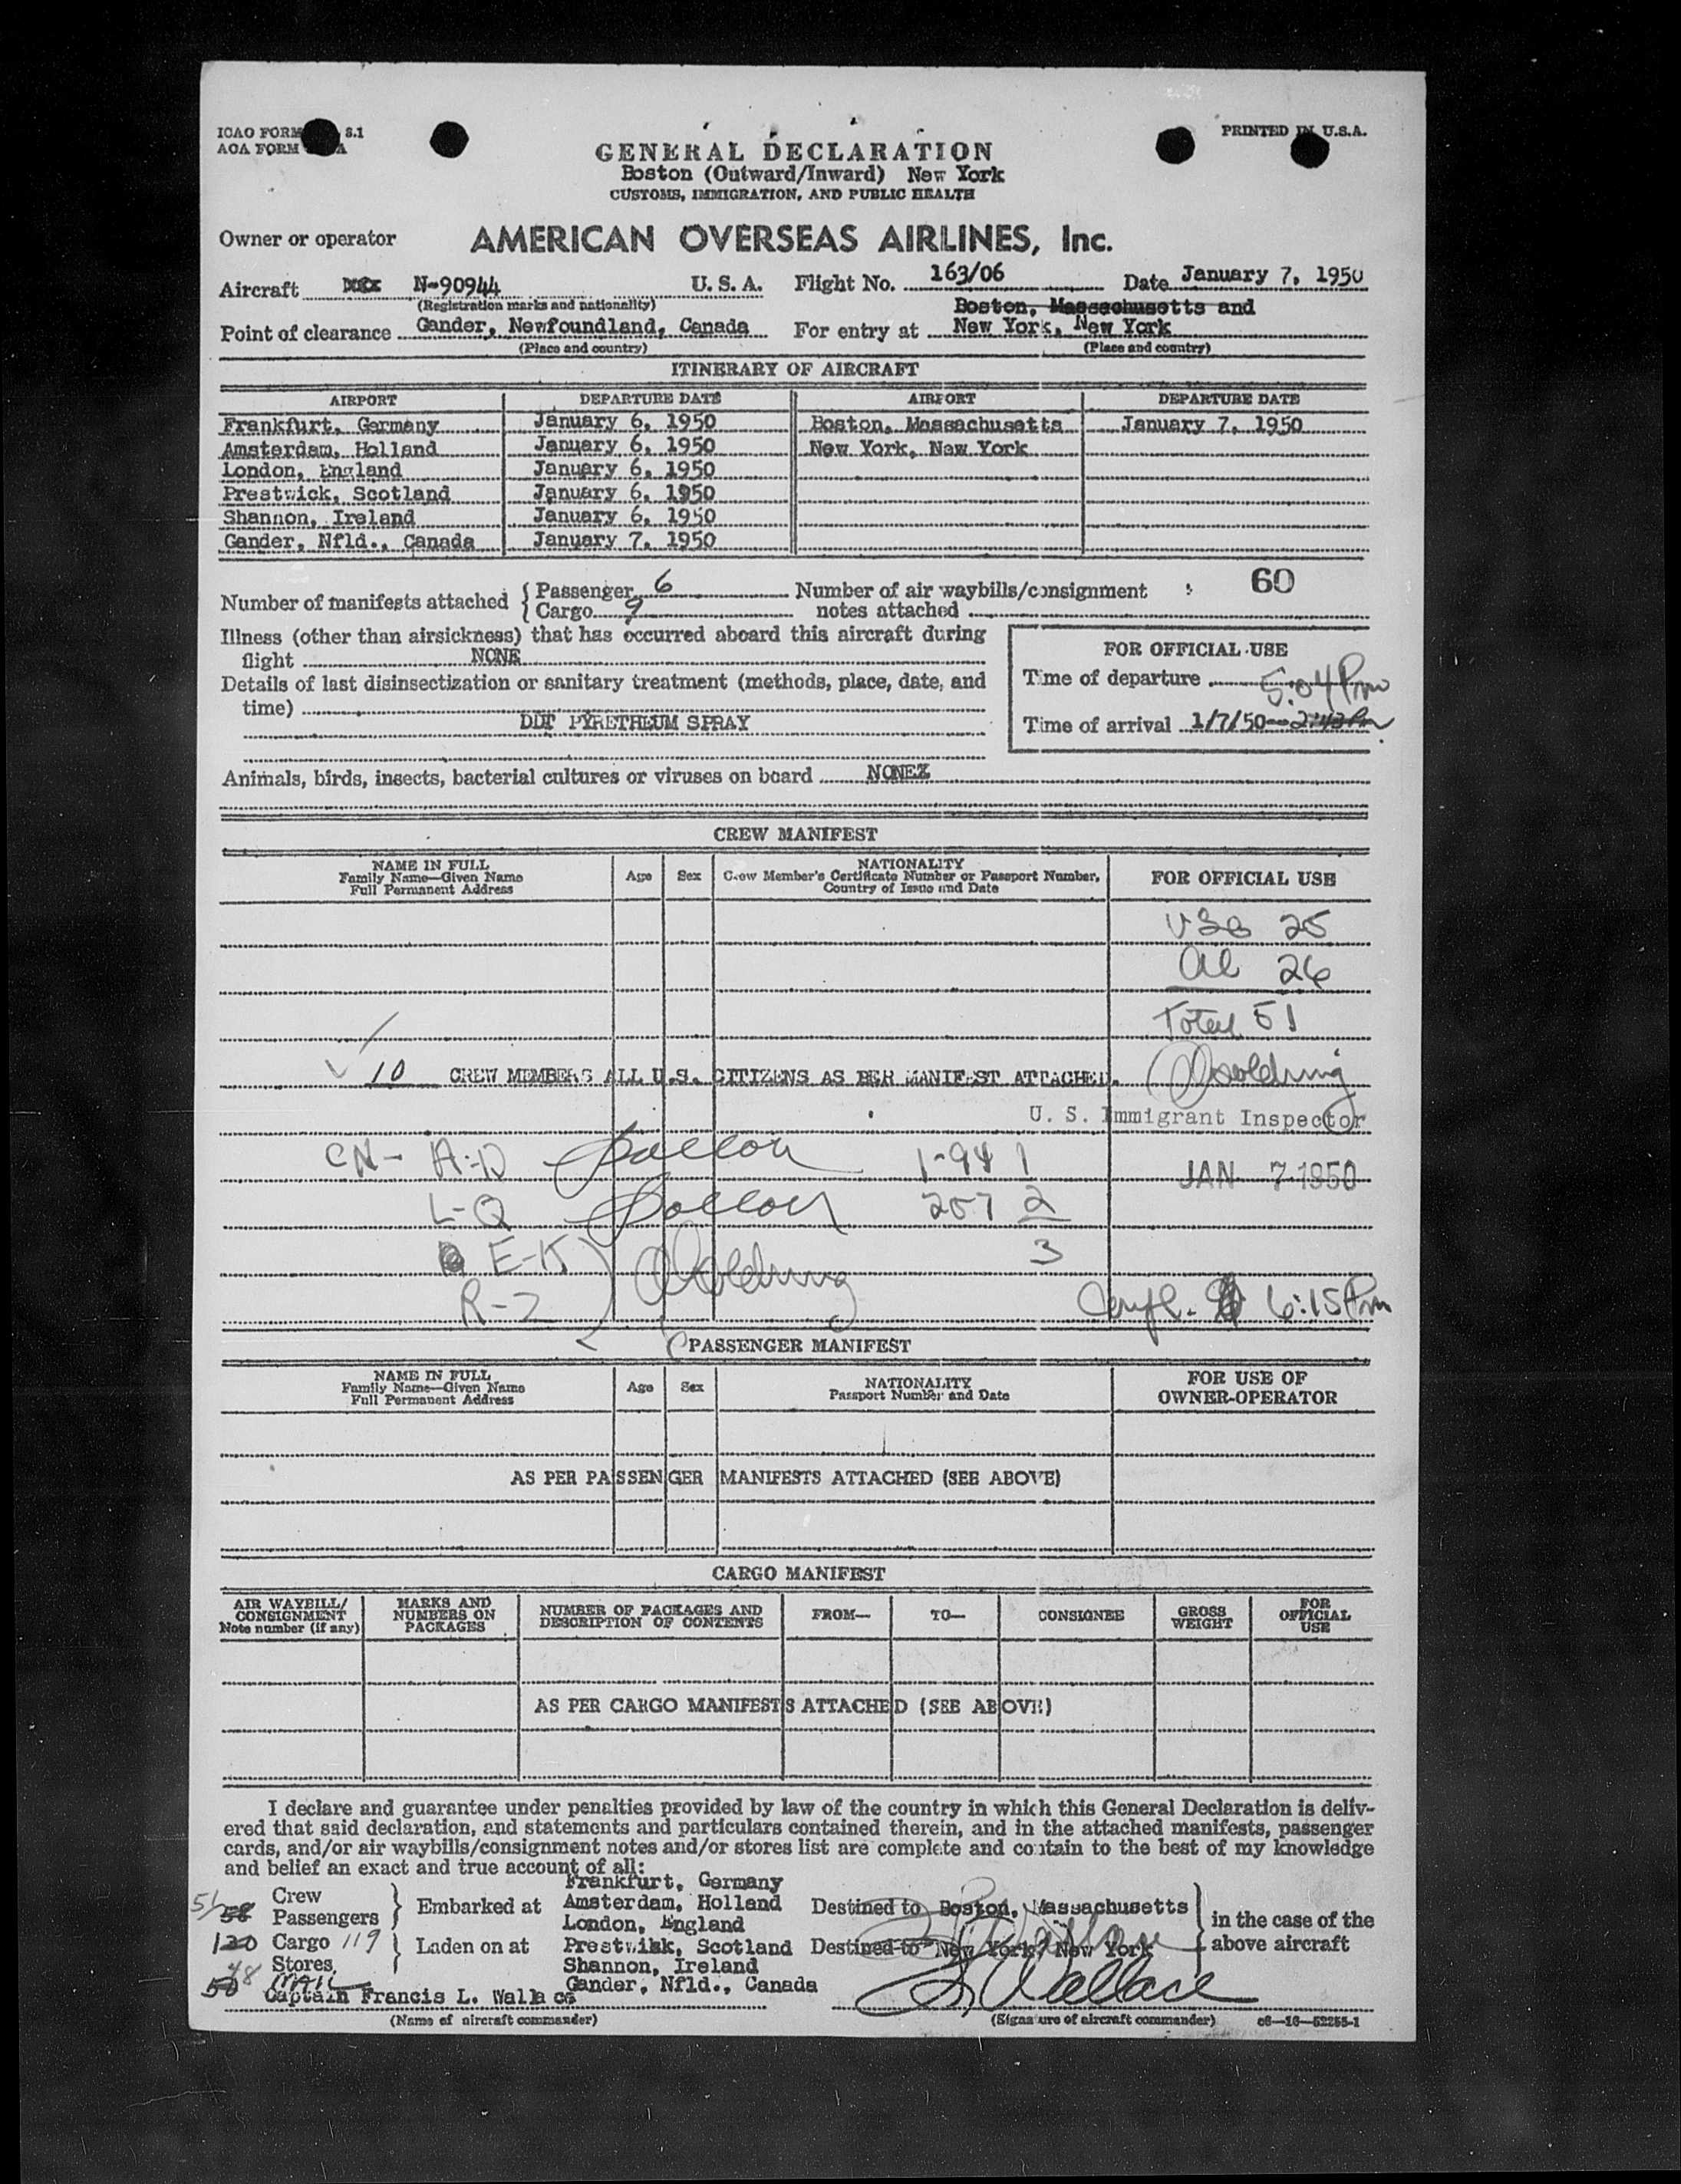 ICAO FORM S.1
AOA FORM A
PRINTED IN U.S.A.
GENERAL DECLARATION
Boston (Outward/Inward) New York
CUSTOMS, IMMIGRATION, AND PUBLIC HEALTH
Owner or operator AMERICAN OVERSEAS AIRLINES, Inc.
Aircraft N-90944 U. S. A. Flight No. 163/06 Date January 7, 1950
(Registration marks and nationality)
Boston, Massachusetts and
Point of clearance Gander, Newfoundland, Canada For entry at New York, New York
(Place and country) (Place and country)
ITINERARY OF AIRCRAFT
AIRPORT DEPARTURE DATE AIRPORT DEPARTURE DATE
Frankfurt, Germany January 6, 1950 Boston, Massachusetts January 7, 1950
Amsterdam, Holland January 6, 1950 New York, New York
London, England January 6, 1950
Prestwick, Scotland January 6, 1950
Shannon, Ireland January 6, 1950
Gander, Nfld., Canada January 7, 1950
Number of manifests attached { Passenger 6 Number of air waybills/consignment : 60
Cargo 9 notes attached
Illness (other than airsickness) that has occurred aboard this aircraft during
flight NONE
Details of last disinsectization or sanitary treatment (methods, place, date, and
time)
DDT PYRETHEUM SPRAY
FOR OFFICIAL USE
Time of departure 5:04 Pm
Time of arrival 1/7/50 2:43 Pm
Animals, birds, insects, bacterial cultures or viruses on board NONEZ
CREW MANIFEST
NAME IN FULL
Family Name—Given Name
Full Permanent Address
Age Sex
NATIONALITY
Crew Member's Certificate Number or Passport Number,
Country of Issue and Date
FOR OFFICIAL USE
USC 25
Al 26
Total 51
10 CREW MEMBERS ALL U.S. CITIZENS AS PER MANIFEST ATTACHED.
U. S. Immigrant Inspector
CN- A-D 1-94 1
JAN 7 1950
L-Q 257 2
E-K 3
R-Z 6:15 Pm
PASSENGER MANIFEST
NAME IN FULL
Family Name—Given Name
Full Permanent Address
Age Sex
NATIONALITY
Passport Number and Date
FOR USE OF
OWNER-OPERATOR
AS PER PASSENGER MANIFESTS ATTACHED (SEE ABOVE)
CARGO MANIFEST
AIR WAYBILL/
CONSIGNMENT
Note number (if any)
MARKS AND
NUMBERS ON
PACKAGES
NUMBER OF PACKAGES AND
DESCRIPTION OF CONTENTS
FROM— TO— CONSIGNEE
GROSS
WEIGHT
FOR
OFFICIAL
USE
AS PER CARGO MANIFESTS ATTACHED (SEE ABOVE)
I declare and guarantee under penalties provided by law of the country in which this General Declaration is deliv-
ered that said declaration, and statements and particulars contained therein, and in the attached manifests, passenger
cards, and/or air waybills/consignment notes and/or stores list are complete and contain to the best of my knowledge
and belief an exact and true account of all:
Frankfurt, Germany
Crew
51 58 Passengers } Embarked at Amsterdam, Holland Destined to Boston, Massachusetts
London, England
in the case of the
120 Cargo 119 } Laden on at Prestwikk, Scotland Destined to New York, New York above aircraft
48 Stores, Shannon, Ireland
50 MAIL Gander, Nfld., Canada
Captain Francis L. Wallace
Wallace
(Name of aircraft commander) (Signature of aircraft commander) c6—16—52255-1